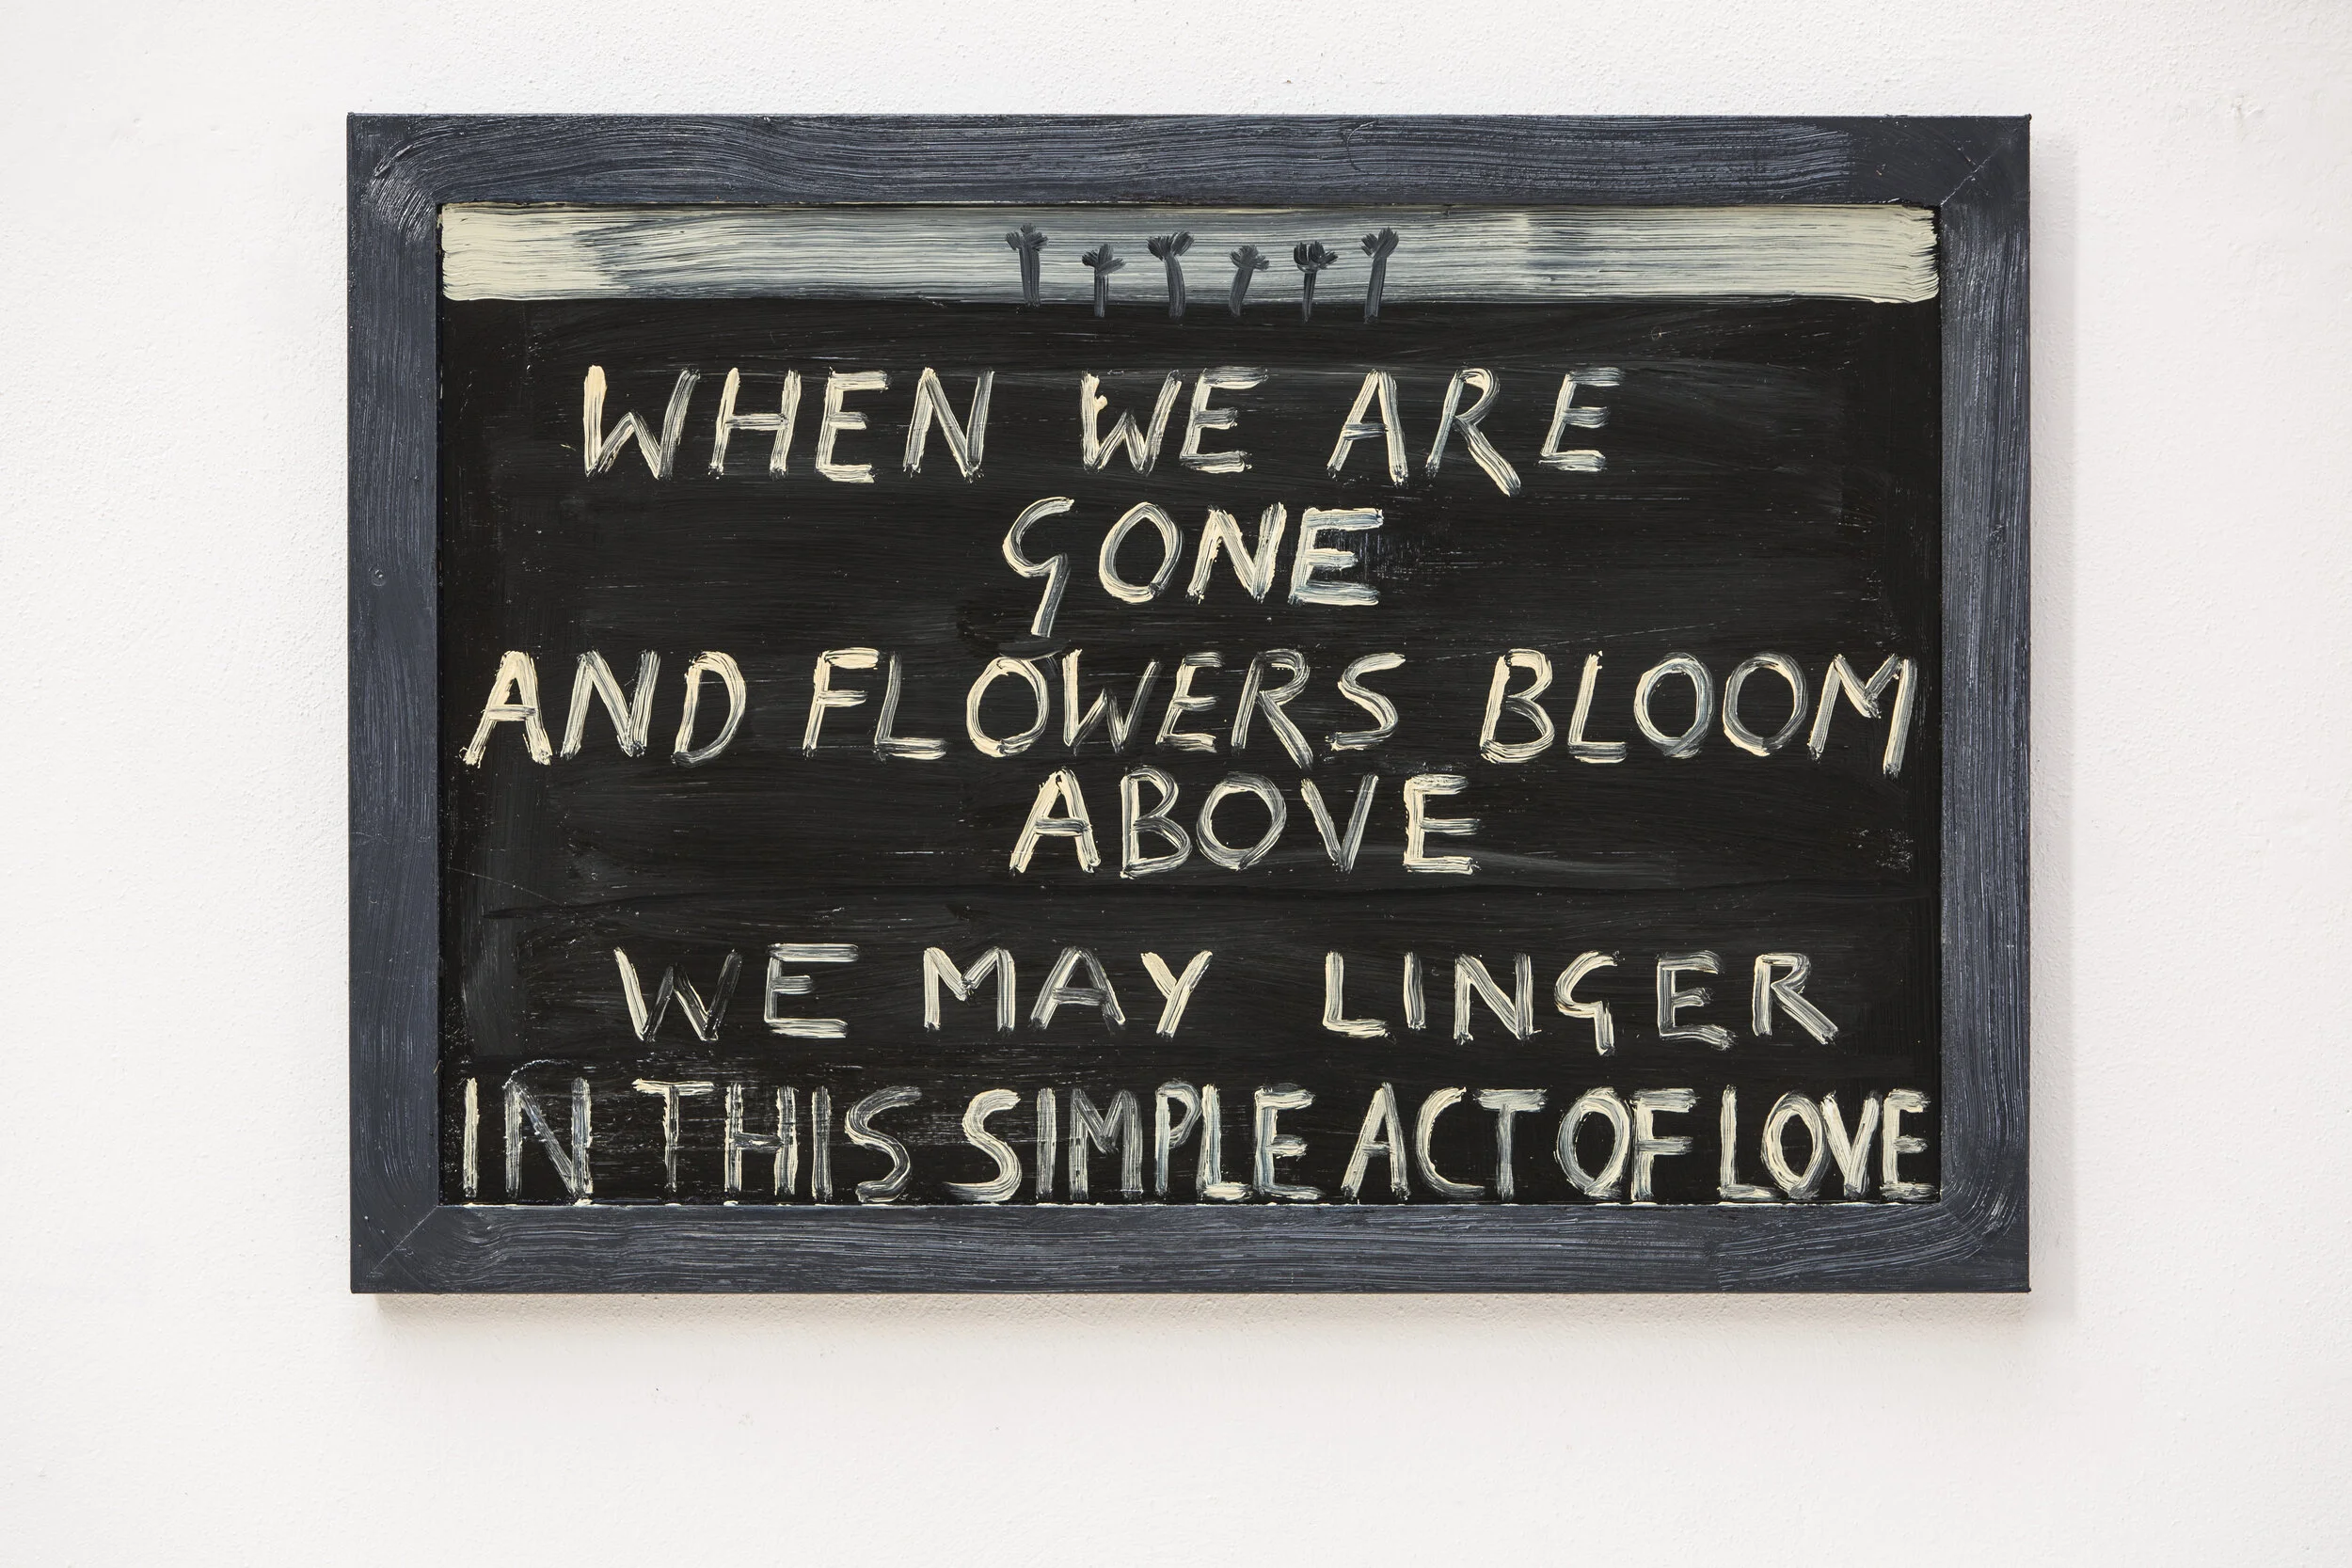 WHEN WE ARE
GONE
AND FLOWERS BLOOM
ABOVE
WE MAY LINGER
IN THIS SIMPLE ACT OF LOVE